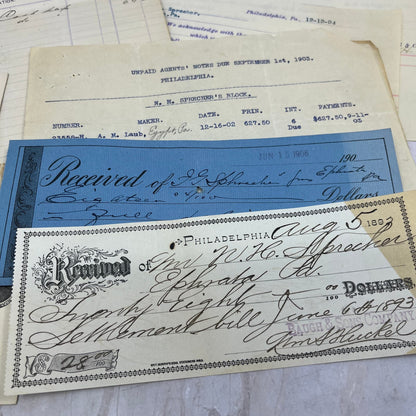 Sprecher,
Pa.
Philadelphia, Pa. 12-12-04
We acknowledge with th
which
UNPAID AGENTS' NOTES DUE SEPTEMBER 1st, 1903.
PHILADELPHIA.
N. H. SPRECHER'S BLOCK.
NUMBER. MAKER. DATE. PRIN. INT. PAYMENTS.
A. N. Laub, Egypt, Pa. 12-16-02 627.50 6 $627.50, 9-11-
Due 03
JUN 15 1906
190
Received of Sprecher from Ephrata Pa
Eighteen 00/100 Dollars
Philadelphia Aug 5 189
Received of Mr N. H. Sprecher
Ephrata Pa.
Twenty Eight 00/100 Dollars
Settlement bill, June 6th 1893
BAUGH COMPANY
$28.00/100